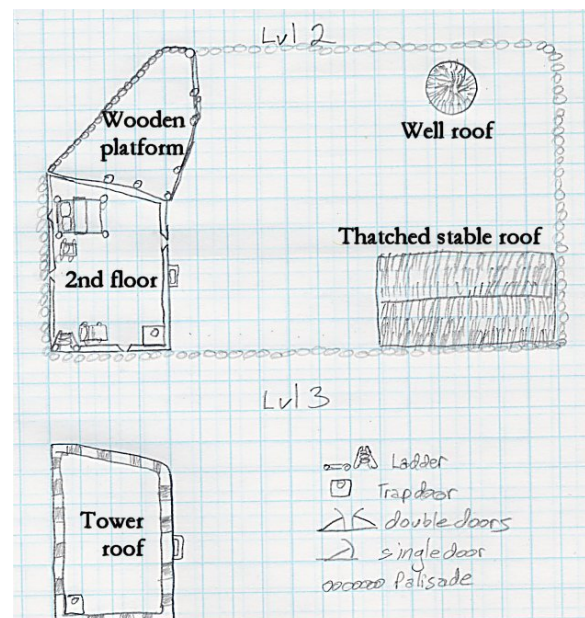 Lvl 2
Wooden
platform
Well roof
Thatched stable roof
2nd floor
Lvl 3
Ladder
Trapdoor
double doors
single door
Palisade
Tower
roof